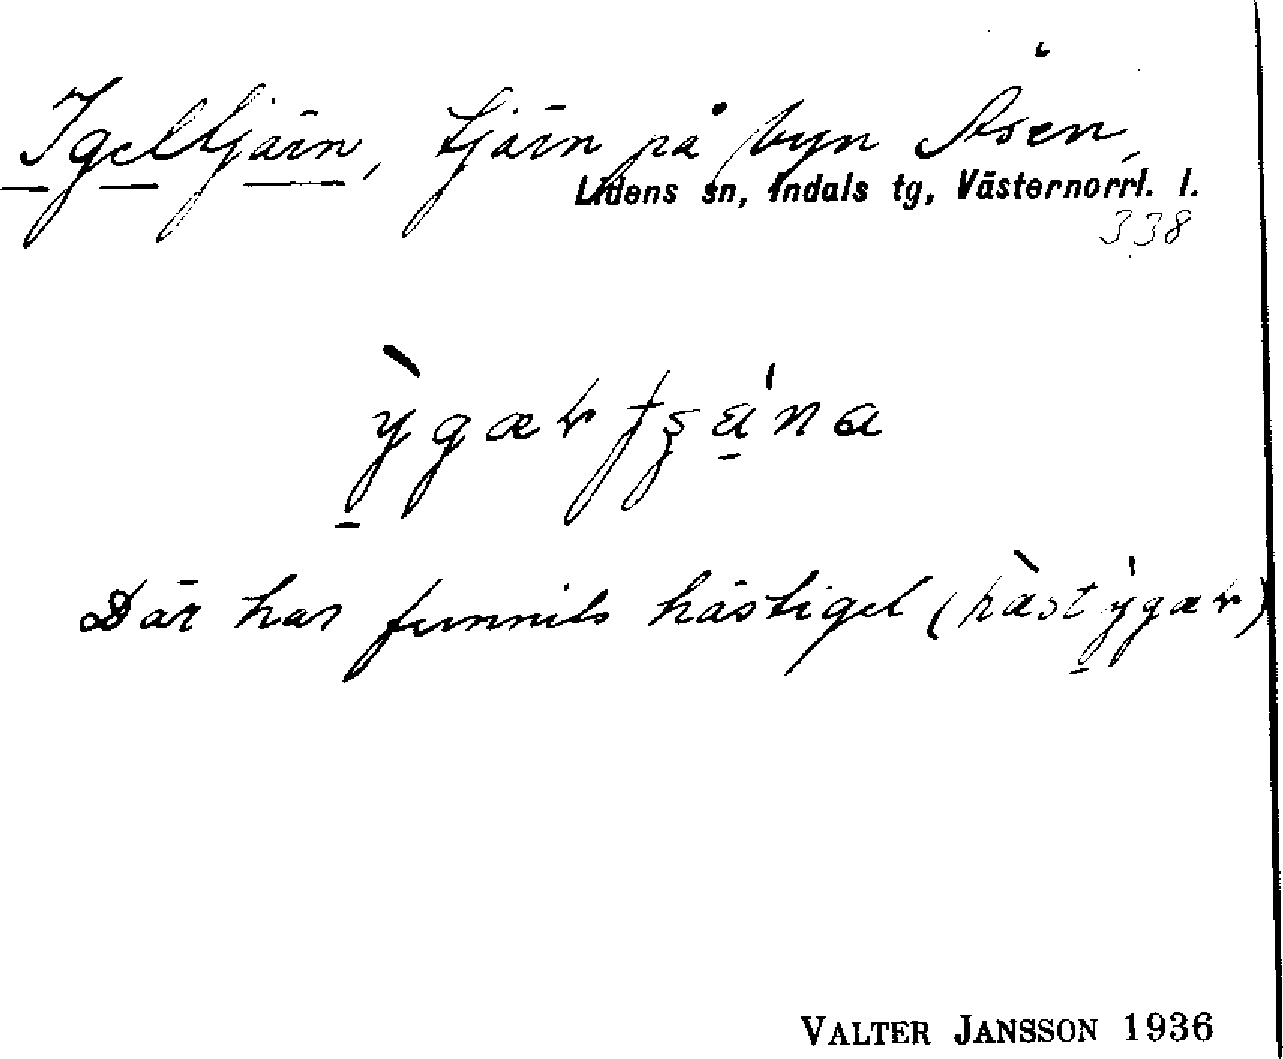 Igeltjärn, tjärn på byn Åsen,
Lidens sn, Indals tg, Västernorrl. l.
338
Där har funnits hästigel
VALTER JANSSON 1936